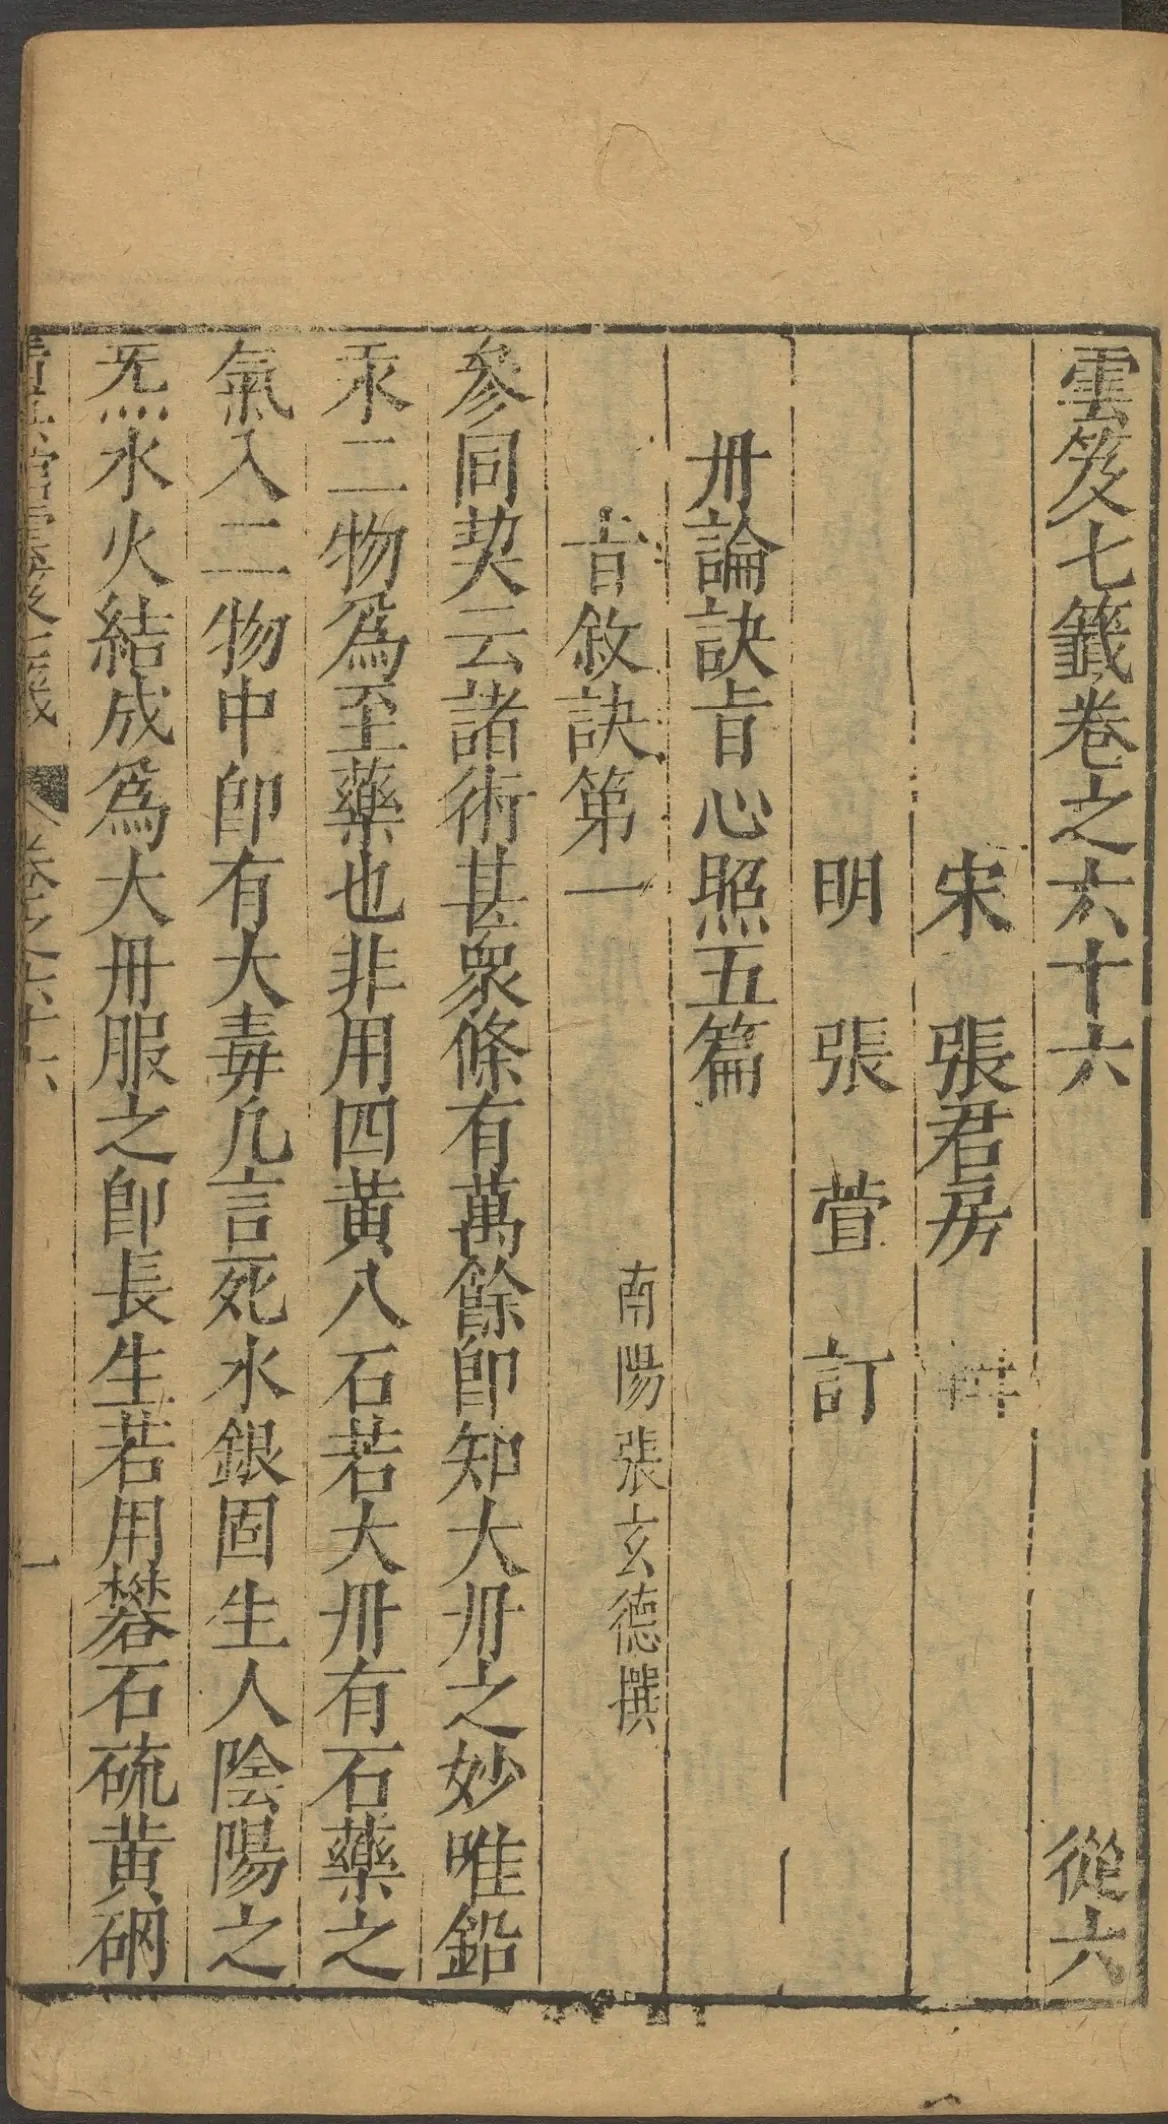 雲笈七籤卷之六十六 從六
宋 張君房
明 張 萱 訂
丹論訣旨心照五篇
旨敘訣第一
南陽張玄德撰
參同契云諸術甚衆條有萬餘卽知大丹之妙唯鉛
汞二物爲至藥也非用四黃八石若大丹有石藥之
氣入二物中卽有大毒凡言死水銀固生人陰陽之
炁水火結成爲大丹服之卽長生若用礬石硫黃硇
卷之六十六
一